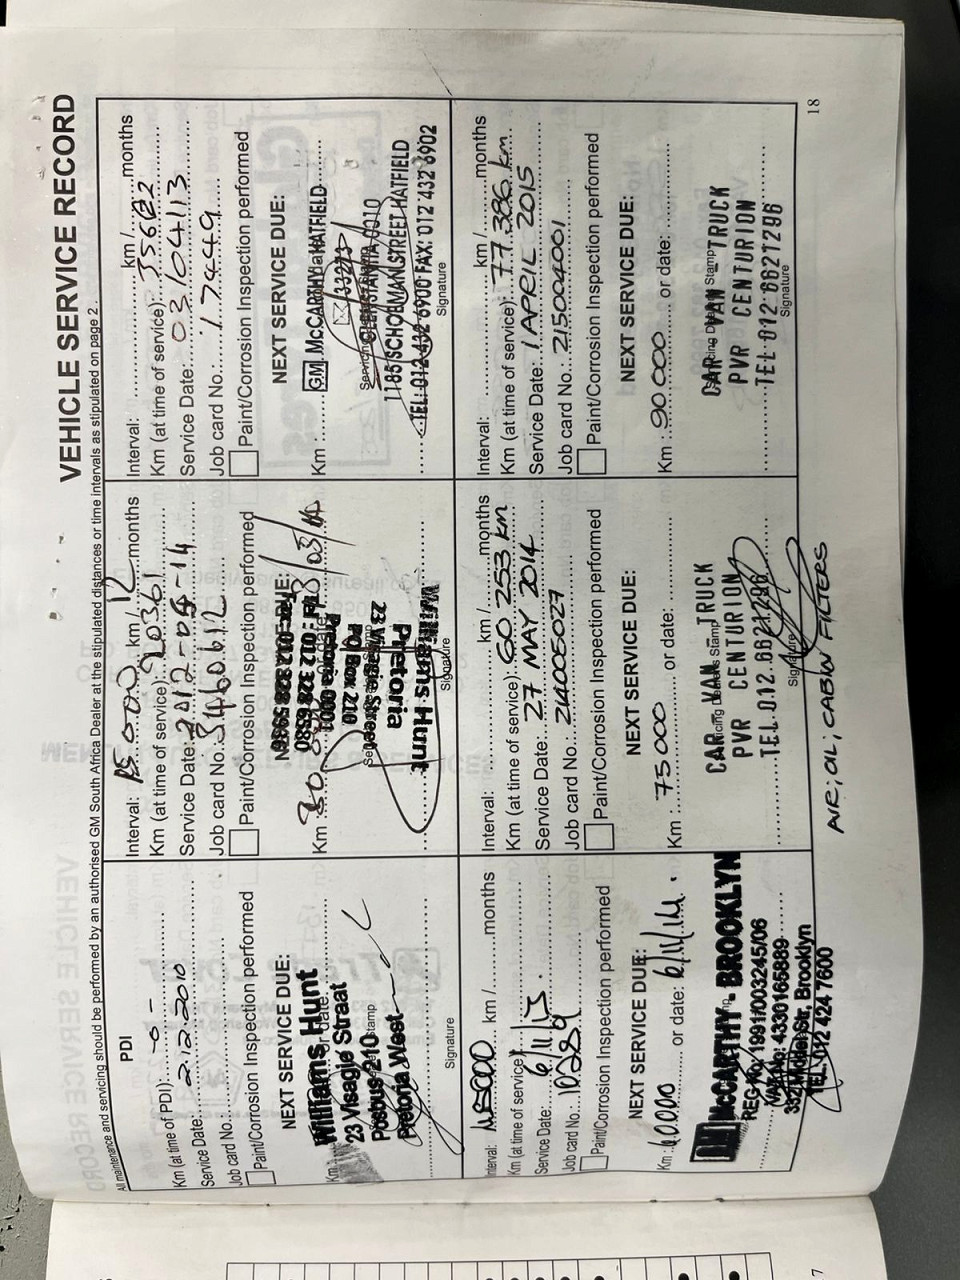 VEHICLE SERVICE RECORD
All maintenance and servicing should be performed by an authorised GM South Africa Dealer at the stipulated distances or time intervals as stipulated on page 2.
PDI
Km (at time of PDI): -0-
Service Date: 2.12.2010
Job card No.
Paint/Corrosion Inspection performed
NEXT SERVICE DUE:
Km or date:
Williams Hunt
23 Visagie Straat
Posbus 210
Pretoria West
Signature
Interval: 15.000 km/ 12 months
Km (at time of service): 20361
Service Date: 2012-05-14
Job card No.
Paint/Corrosion Inspection performed
NEXT SERVICE DUE:
Km:
Williams Hunt
Pretoria
23 Visagie Street
PO Box 210
Pretoria 0001
Tel: 012 328 6580
Signature
Interval: km/ months
Km (at time of service):
Service Date: 03/04/13
Job card No. 17449
Paint/Corrosion Inspection performed
NEXT SERVICE DUE:
Km
GM McCARTHY HATFIELD
33213
1185 SCHOEMAN STREET HATFIELD
TEL: 012 432 6900 FAX: 012 432 6902
Signature
Interval: 15000 km/ months
Km (at time of service)
Service Date: 6/11/13
Job card No. 1029
Paint/Corrosion Inspection performed
NEXT SERVICE DUE:
Km: 60000 or date: 6/11/14.
GM McCARTHY - BROOKLYN
REG No 1991/003245/06
VAT No: 4330165889
Middel Str, Brooklyn
TEL: 012 424 7600
Interval: km/ months
Km (at time of service): 60 253 km
Service Date: 27 MAY 2014
Job card No. 214005027
Paint/Corrosion Inspection performed
NEXT SERVICE DUE:
Km: 75 000 or date:
CAR - VAN - TRUCK
PVR CENTURION
TEL.012.6621296
Signature
AIR; OIL; CABIN FILTERS
Interval: km/ months
Km (at time of service): 77 386 km
Service Date: 1 APRIL 2015
Job card No. 215004001
Paint/Corrosion Inspection performed
NEXT SERVICE DUE:
Km: 90 000 or date:
CAR - VAN - TRUCK
PVR CENTURION
TEL 012 6621296
Signature
18